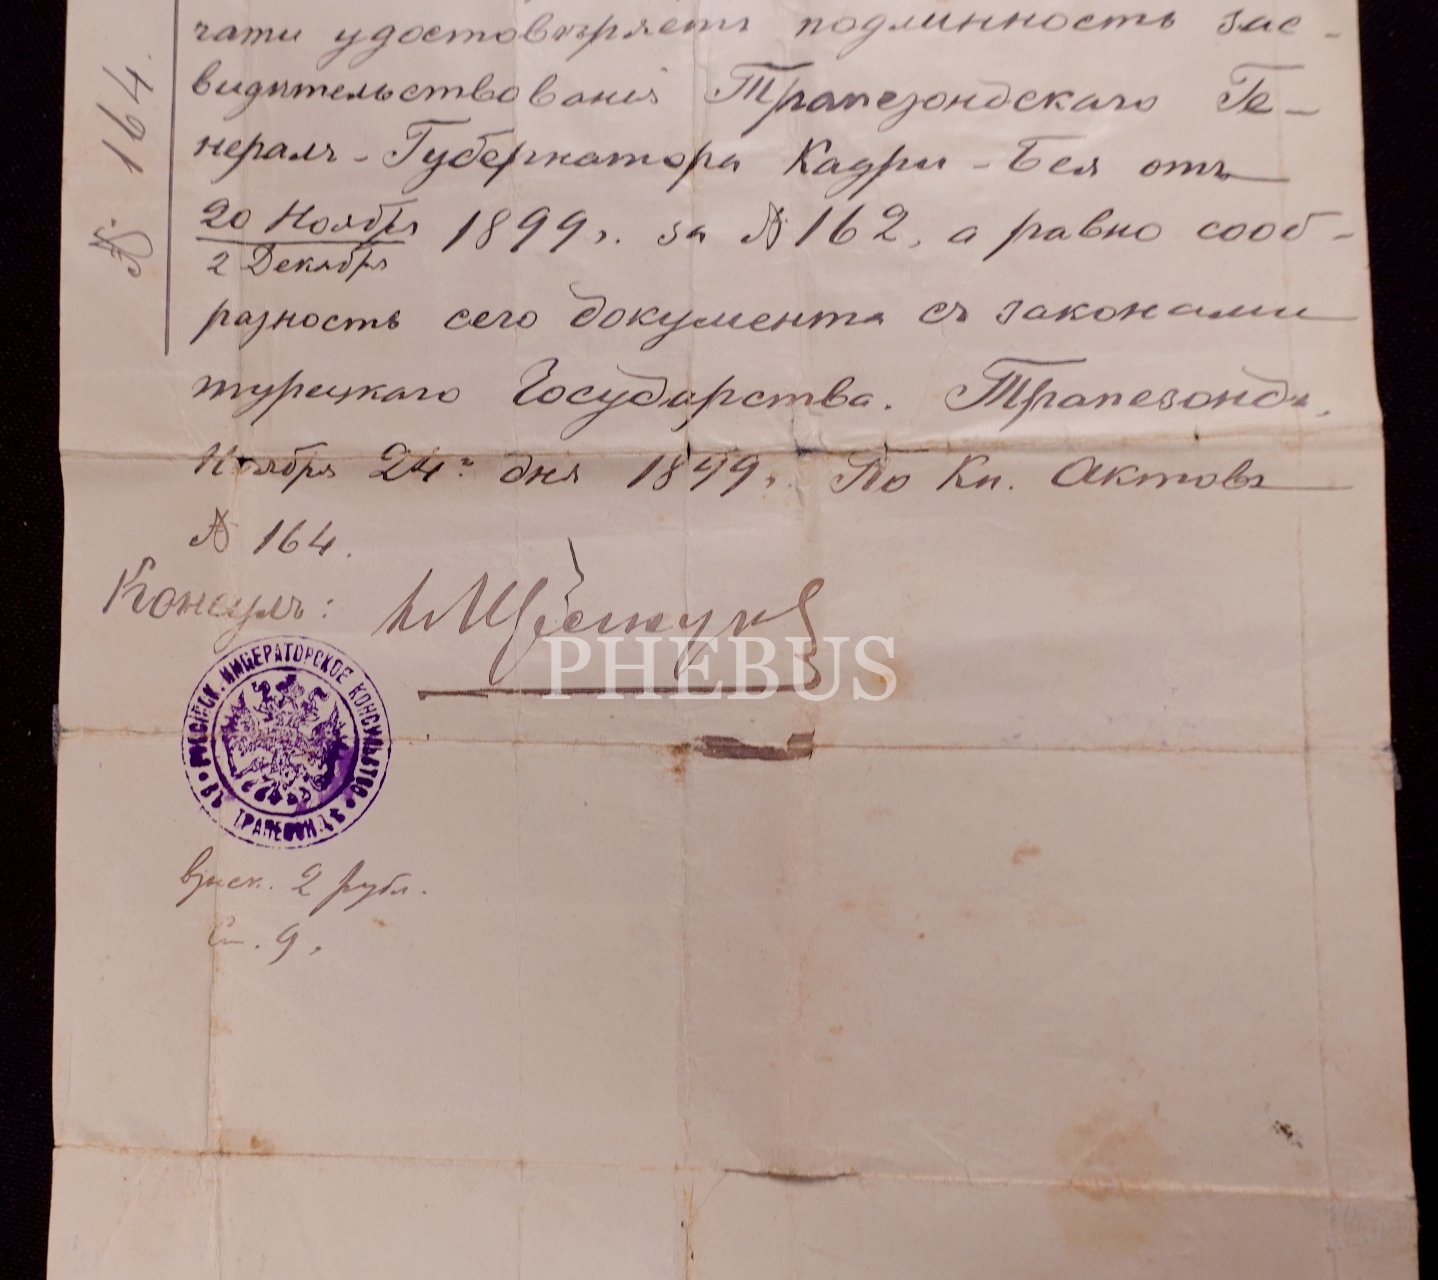 чати удостовѣряетъ подлинность зас-
видѣтельствованія Трапезондскаго Ге-
нералъ-Губернатора Кадри-Бея отъ
20 Ноября
2 Декабря
1899 г. за № 162, а равно сооб-
разность сего документа съ законами
турецкаго Государства. Трапезондъ,
Ноября 24го дня 1899 г. По Кн. Актовъ
№ 164.
№ 164.
Консулъ:
PHEBUS
РОССІЙСК. ИМПЕРАТОРСКОЕ КОНСУЛЬСТВО
ВЪ ТРАПЕЗОНДѢ
взыск. 2 рубл.
Ст. 9.